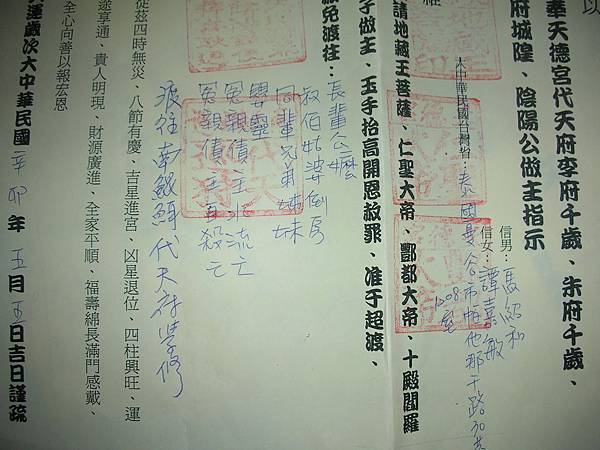 以
奉天德宮代天府李府千歲、朱府千歲、
府城隍、陰陽公做主指示
信男：馬紹和
信女：譚嘉敏
大中華民國台灣省：泰國曼谷市梅他那干路30巷
1208室
請地藏王菩薩、仁聖大帝、酆都大帝、十殿閻羅
子做主、玉手抬高開恩赦罪、准于超渡、
赦免渡往：長輩公媽
叔伯姑婆倒房
同輩兄弟姊妹
嬰靈
冤親債主水流亡
冤親債主自殺亡
渡往南鯤鯓代天府學修
從茲四時無災、八節有慶、吉星進宮、凶星退位、四柱興旺、運
途享通、貴人明現、財源廣進、全家平順、福壽綿長滿門感戴、
全心向善以報宏恩
歲次大中華民國辛卯年五月五日吉日謹疏